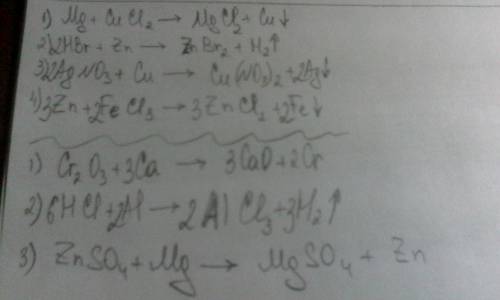 1) Mg + CuCl₂ → MgCl₂ + Cu↓
2) 2HBr + Zn → ZnBr₂ + H₂↑
3) 2AgNO₃ + Cu → Cu(NO₃)₂ + 2Ag↓
4) 3Zn + 2FeCl₃ → 3ZnCl₂ + 2Fe↓
1) Cr₂O₃ + 3Ca → 3CaO + 2Cr
2) 6HCl + 2Al → 2AlCl₃ + 3H₂↑
3) ZnSO₄ + Mg → MgSO₄ + Zn